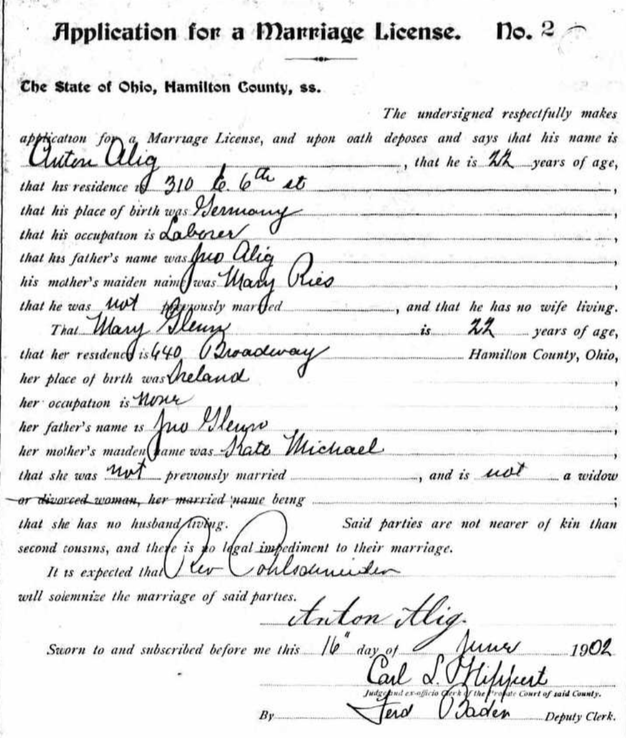 Application for a Marriage License. No. 2
The State of Ohio, Hamilton County, ss.
The undersigned respectfully makes
application for a Marriage License, and upon oath deposes and says that his name is
Anton Alig, that he is 22 years of age,
that his residence is 310 E. 6th st,
that his place of birth was Germany,
that his occupation is Laborer,
that his father's name was Jno Alig,
his mother's maiden name was Mary Ries
that he was not previously married, and that he has no wife living.
That Mary Glenn is 22 years of age,
that her residence is 640 Broadway Hamilton County, Ohio,
her place of birth was Ireland,
her occupation is None,
her father's name is Jno Glenn,
her mother's maiden name was Kate Michael,
that she was not previously married, and is not a widow
or divorced woman, her married name being;
that she has no husband living. Said parties are not nearer of kin than
second cousins, and there is no legal impediment to their marriage.
It is expected that Rev
will solemnize the marriage of said parties.
Anton Alig.
Sworn to and subscribed before me this 16" day of June 1902
Carl L. Nippert
Judge and ex-officio Clerk of the Probate Court of said County.
By Ferd Bader Deputy Clerk.